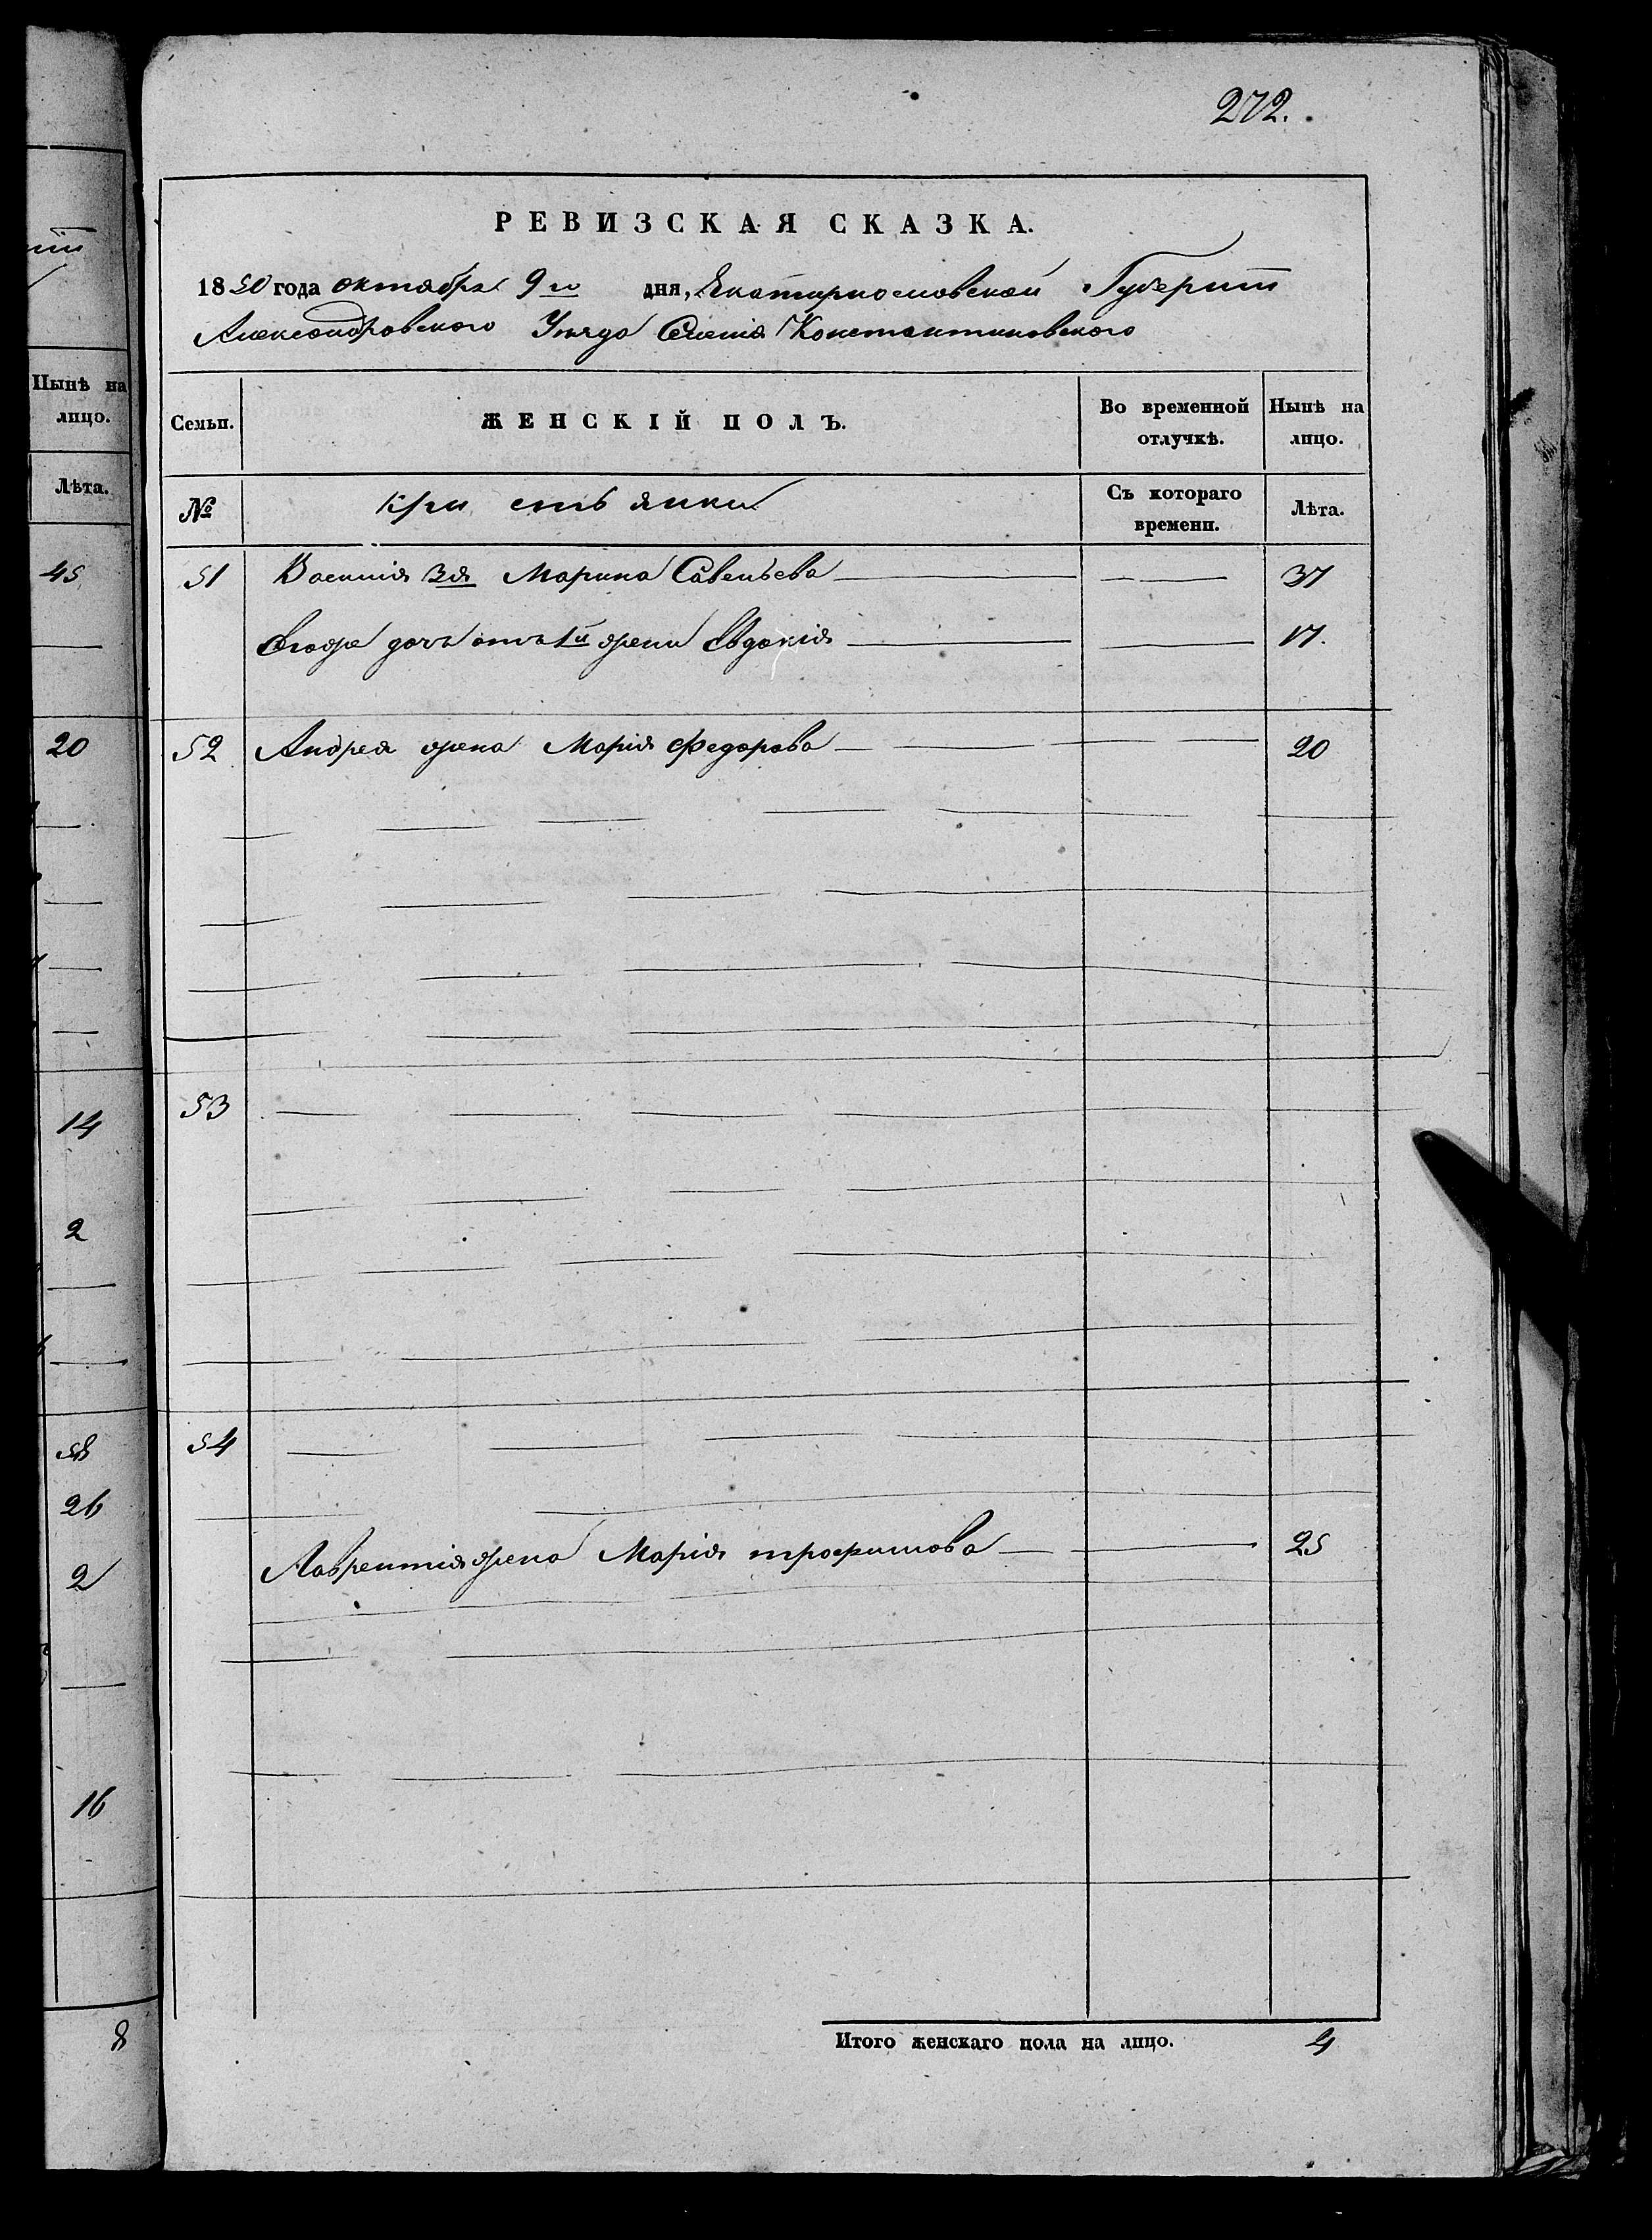 272.
РЕВИЗСКАЯ СКАЗКА.
1850 года октября 9го дня, Екатеринославской Губернии
Александровского Уезда Селения Константиновского
Нынѣ на лицо.
Лѣта.
45
20
14
2
58
26
2
16
8
Семьи. ЖЕНСКІЙ ПОЛЪ. Во временной отлучкѣ. Нынѣ на лицо.
№ кристьянки Съ котораго времени. Лѣта.
51 Василия 2я Марина Савельева 37
Егоже дочь отъ 1й жени Евдокія 17.
52 Андрея жена Марія Федорова 20
53
54
Лаврентія жена Марія трофимова 25
Итого женскаго пола на лицо. 4